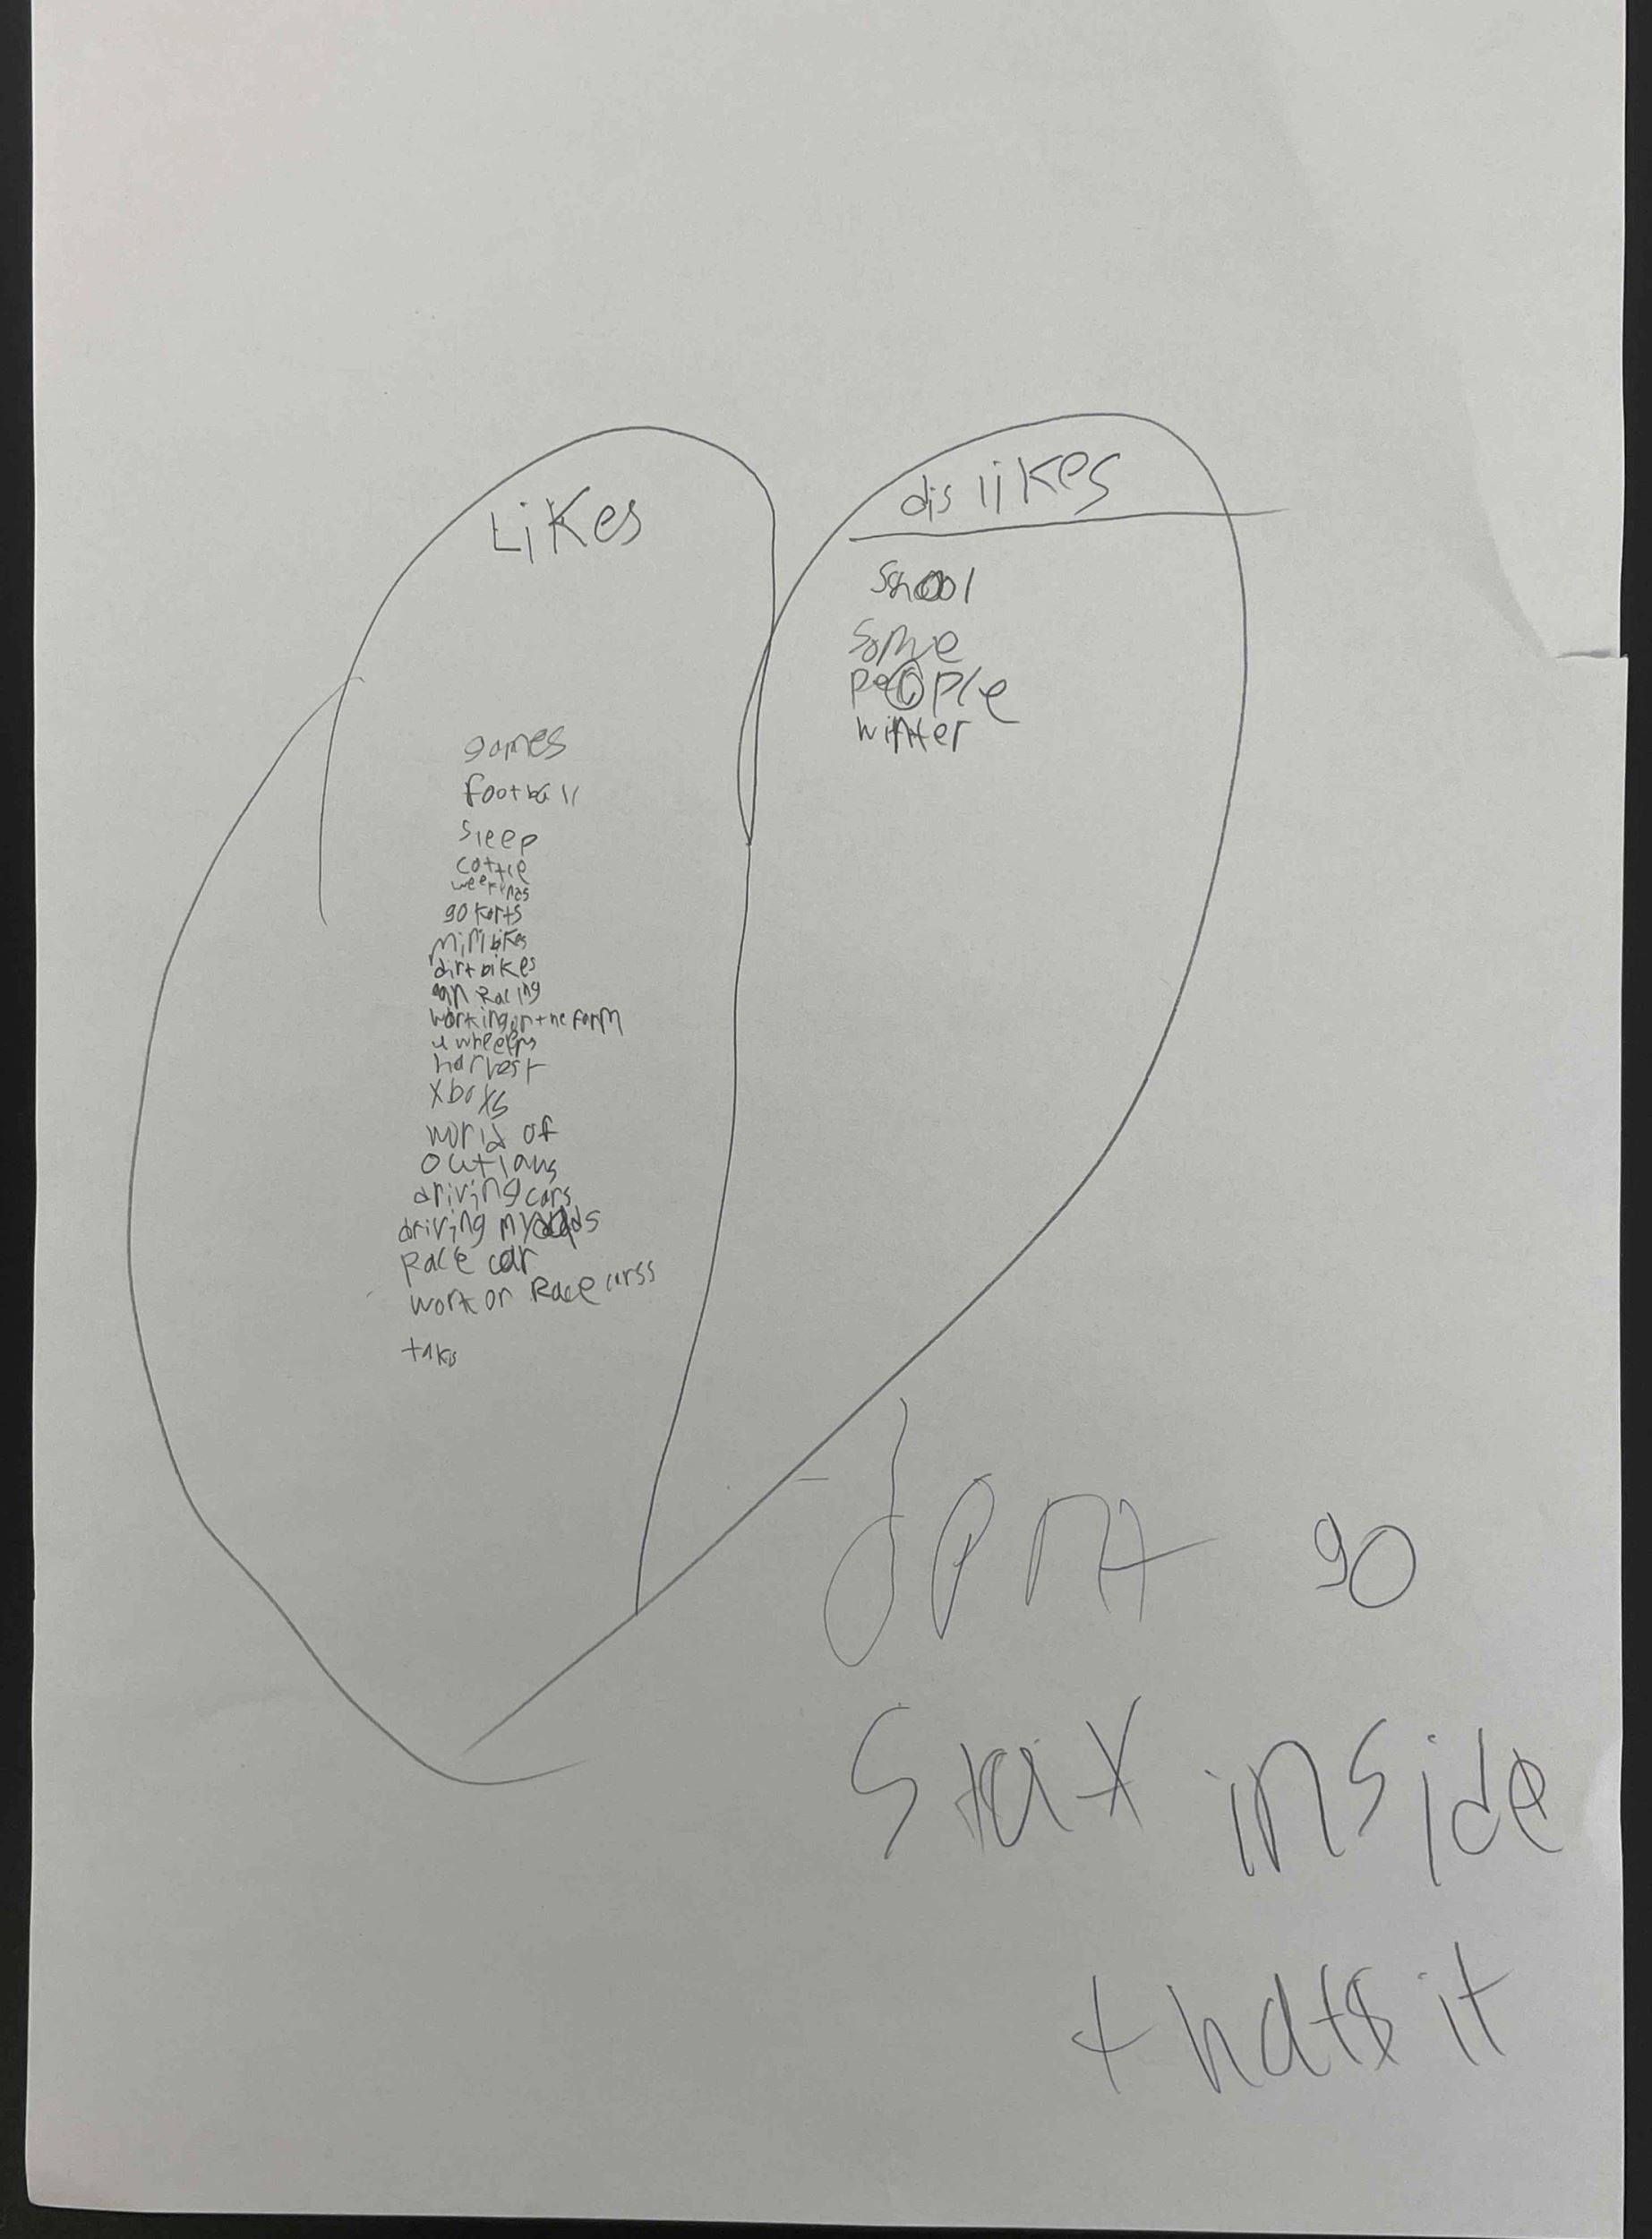 Likes
games
football
sleep
cattle
weekends
go karts
mini bikes
dirt bikes
Racing
working on the farm
4 wheelers
harvest
xboxs
world of
outlaws
driving cars
driving my dads
Race car
work on Race carss
takis
dis likes
School
Some
people
winter
dont go
stay inside
thats it